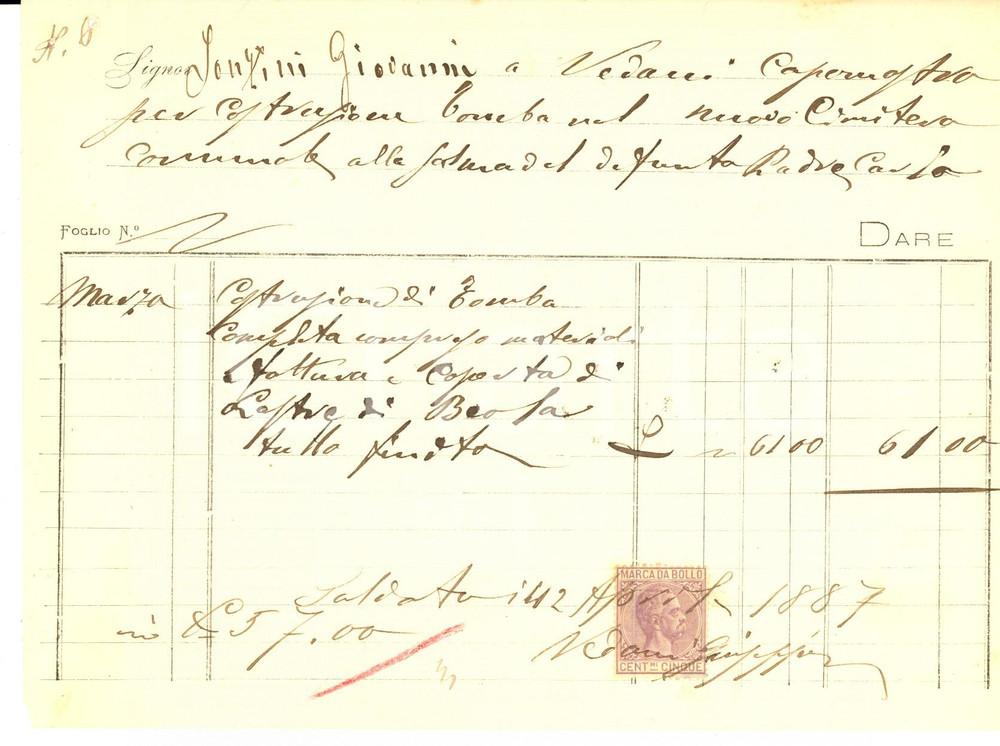 N. 6
Signor Giovanni a Vedani Capomastro
per Costruzione Tomba nel nuovo Cimitero
Comunale alla Salma del defunto Padre Carlo
FOGLIO N.º
DARE
Marzo Costruzione di Tomba
Completa compreso materiali
fattura e Coperta di
Lastre di Beola
tutto finito L 61 00 61 00
MARCA DA BOLLO
Saldato il 12 Aprile 1887
in £ 57.00
Vedani Giuseppe
CENT.MI CINQUE